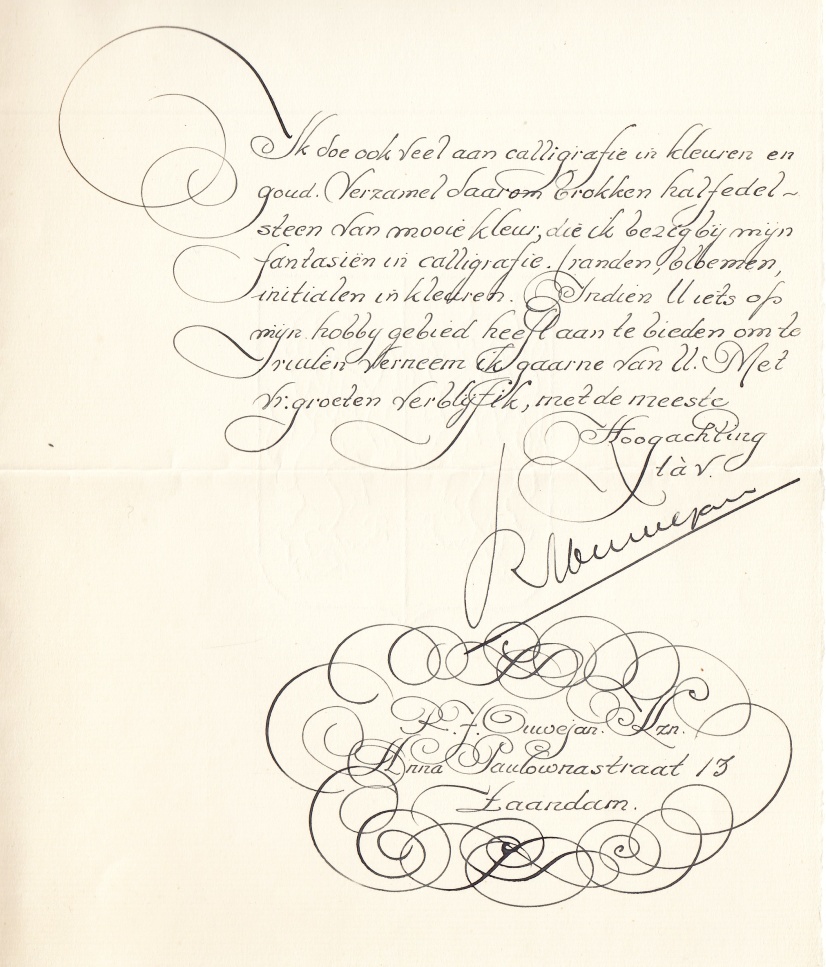 Ik doe ook veel aan calligrafie in kleuren en
goud. Verzamel daarom brokken halfedel~
steen van mooie kleur, die ik bezig bij mijn
fantasiën in calligrafie. (randen, bloemen,
initialen in kleuren. Indien U iets op
mijn hobby gebied heeft aan te bieden om te
ruilen verneem ik gaarne van U. Met
vr. groeten verblijf ik, met de meeste
Hoogachting
t à v.
R. J. Ouwejan. Hzn.
Anna Paulownastraat 13
Zaandam.